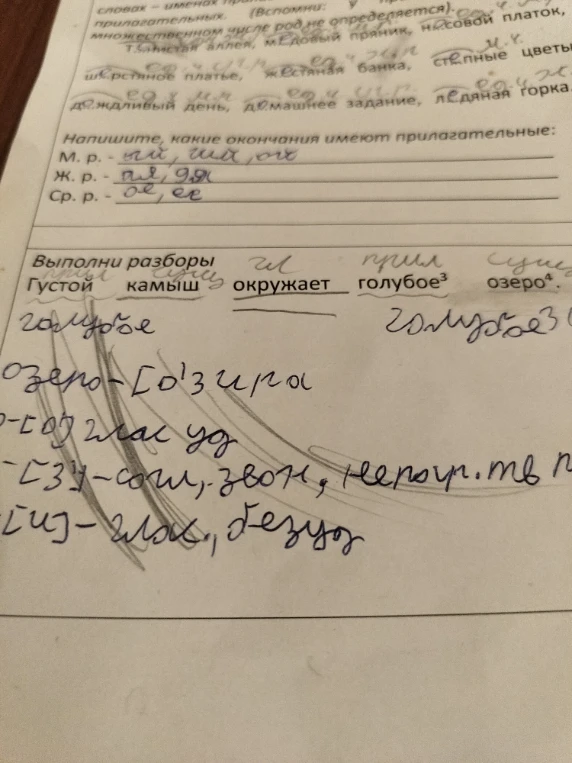 словах – именах
прилагательных. (Вспомни: у
множественном числе род не определяется).
аллея, медовый пряник, носовой платок,
ед. ч.
м. ч.
шерстяное платье, жестяная банка, степные цветы
дождливый день, домашнее задание, ледяная горка.
Напишите, какие окончания имеют прилагательные:
М. р. - ый, ий, ой
Ж. р. - ая, яя
Ср. р. - ое, ее
Выполни разборы
прил сущ гл прил сущ
Густой камыш окружает голубое³ озеро⁴.
голубое голубое3
озеро-[о'зира
[о] глас уд
[з']-согл, звон, непар. тв
[и]-глас., безуд